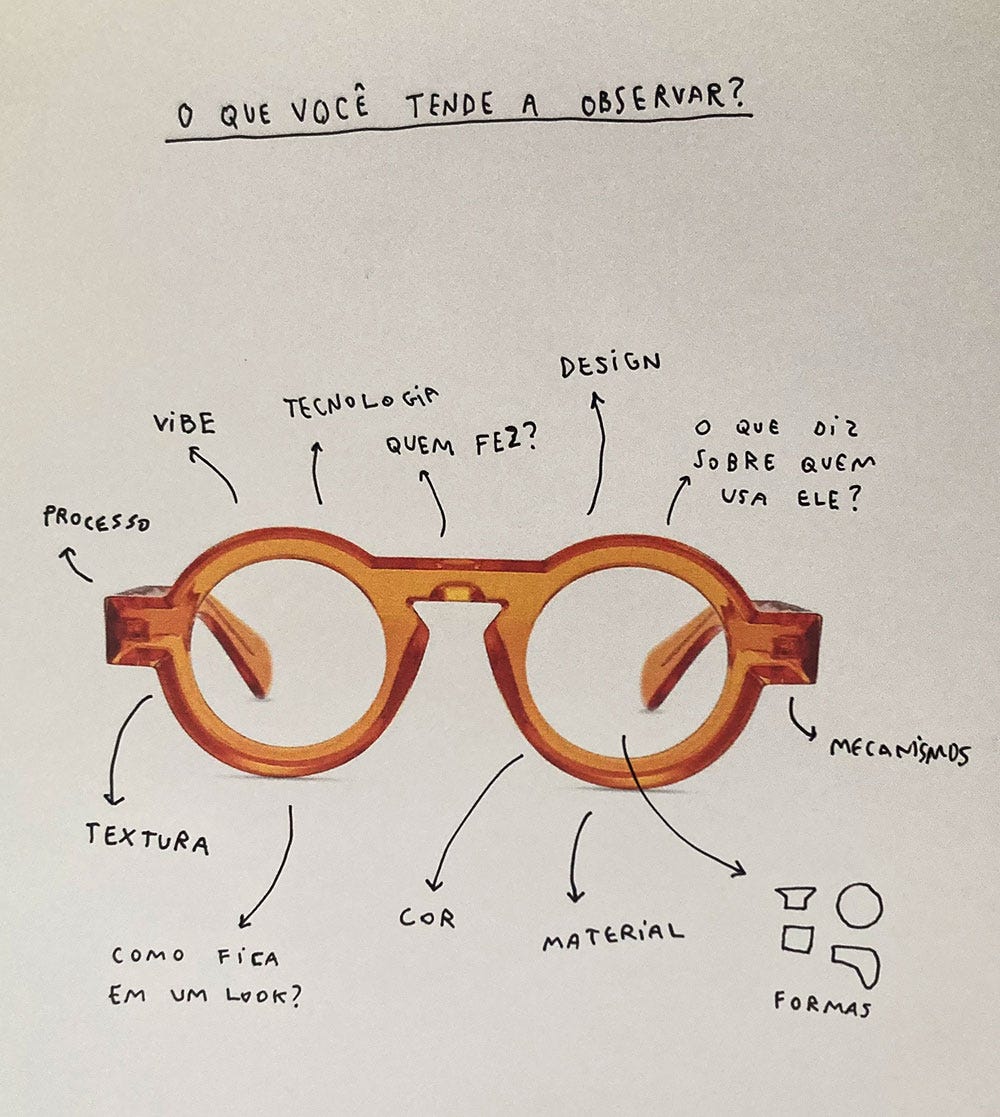 O QUE VOCÊ TENDE A OBSERVAR?
DESIGN
VIBE
TECNOLOGIA
QUEM FEZ?
O QUE DIZ
SOBRE QUEM
USA ELE?
PROCESSO
MECANISMOS
TEXTURA
COR
MATERIAL
COMO FICA
EM UM LOOK?
FORMAS